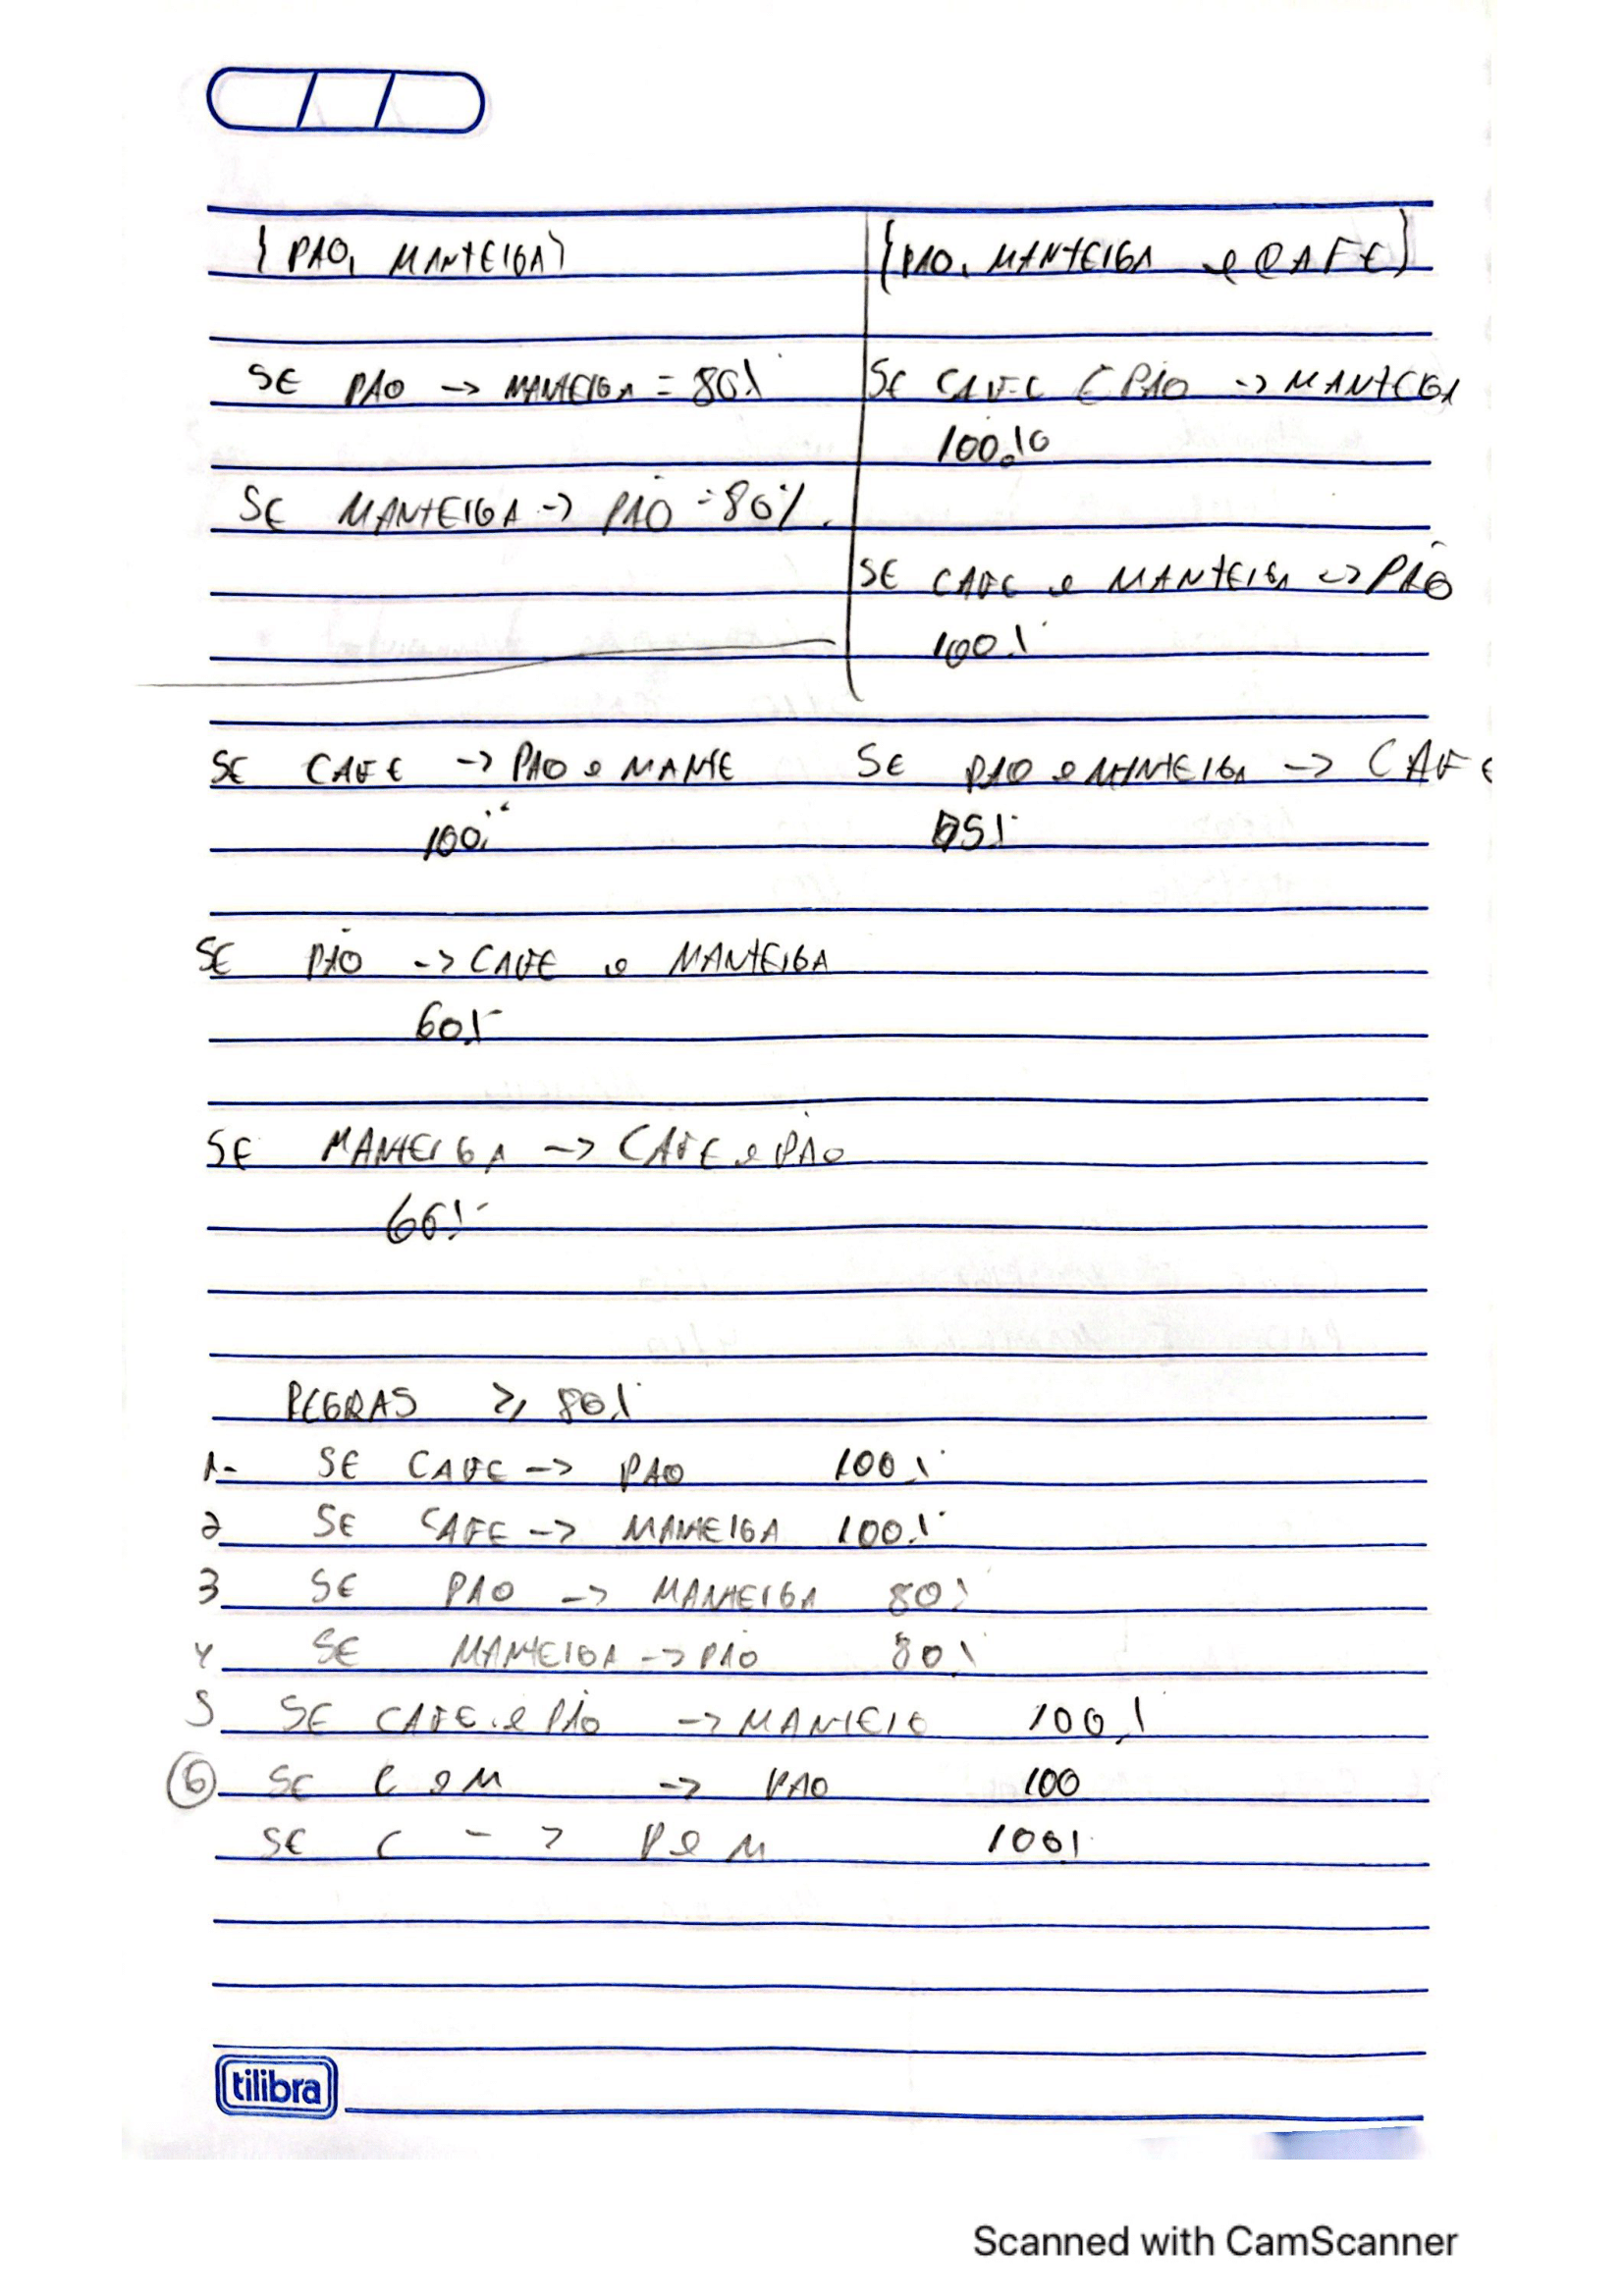 {PAO, MANTEIGA}
{PAO, MANTEIGA e CAFE}
SE PAO -> MANTEIGA = 80%
SE CAFE E PAO -> MANTEIGA
100%
SE MANTEIGA -> PÃO = 80%.
SE CAFE e MANTEIGA -> PÃO
100%
SE CAFE -> PAO e MANTE
100%
SE PAO e MANTEIGA -> CAFE
75%
SE PÃO -> CAFE e MANTEIGA
60%
SE MANTEIGA -> CAFE e PÃO
60%
REGRAS ≥ 80%
1- SE CAFE -> PAO 100%
2 SE CAFE -> MANTEIGA 100%
3 SE PAO -> MANTEIGA 80%
4 SE MANTEIGA -> PÃO 80%
5 SE CAFE e PÃO -> MANTEIG 100%
6 SE C e M -> PAO 100
SE C -> P e M 100%
tilibra
Scanned with CamScanner